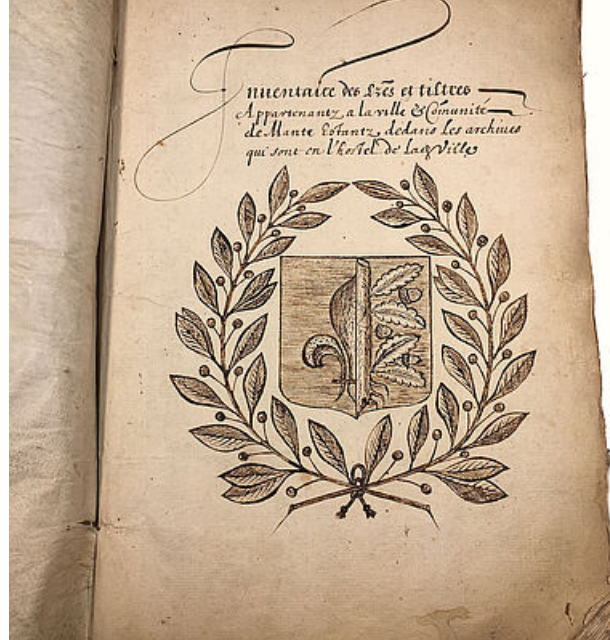 Inuentaire des Lr̃es et tiltres
Appartenantz a la ville & Com̃unité
de Mante Estantz dedans les archiues
qui sont en l'hostel de lad Ville